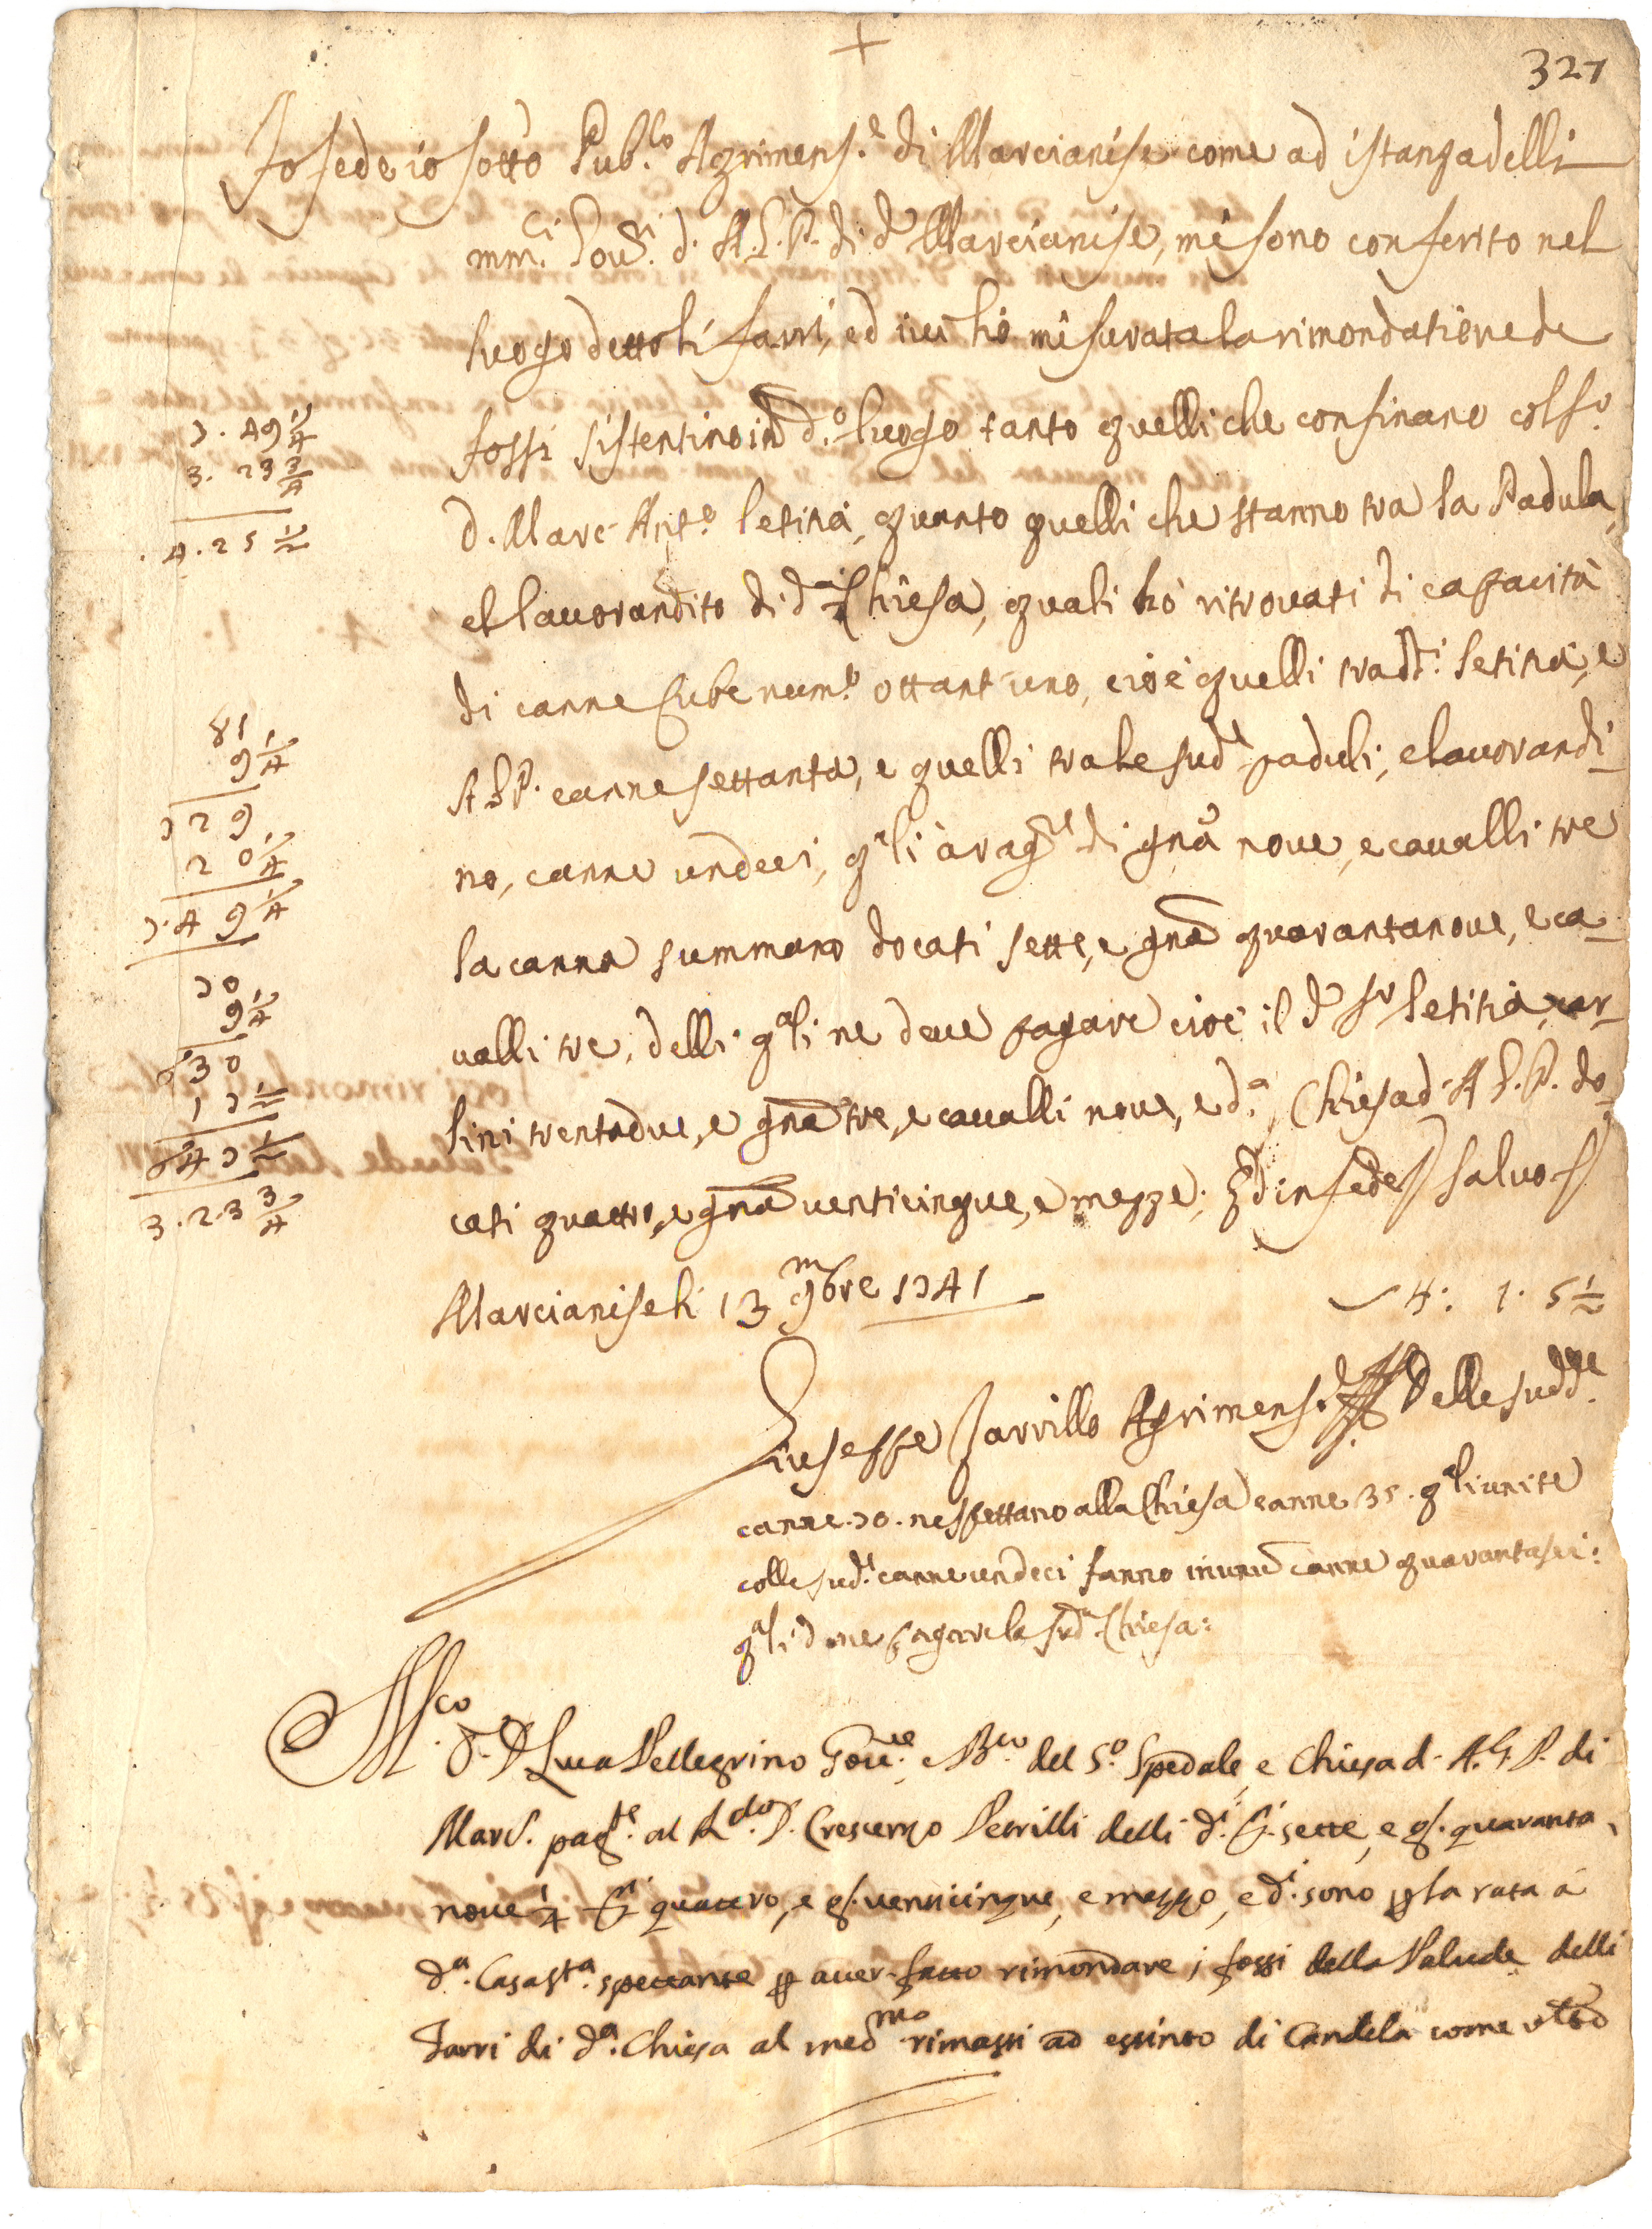 +
327
Fo fede io sotto Pub.lo Agrimens.e di Marcianise come ad istanza delli
mm.ci Gov.ri d. A.G.P. di d.o Marcianise, mi sono conferito nel
luogo detto li farri, ed ivi hò misurata la rimondatione de
fossi sistentino in d.o luogo tanto quelli che confinano col S.r
D. Marc' Ant.o Letitia, quanto quelli che stanno tra la Padula,
el lavorandito di d.a Chiesa, quali hò ritrovati di capacità
di canne Cube num.o ottant'uno, cioè quelli tra d.i Letitia, e
A.G.P. canne settanta, e quelli tra le sud.e paduli, e lavorandi-
no, canne undeci, q.ali à rag.e di gnà nove, e cavalli tre
la canna summano docati sette, e gnà quarantanove, e ca-
valli tre, delli q.ali ne deve pagare cioè il d.o S.r Letitia car-
lini trentadue, e gnà tre, e cavalli nove, e d.a Chiesa d. A.G.P. do-
cati quattro, e gnà venticinque, e mezze; ed in fede salvo
Marcianise li 13 9mbre 1741
4: 1. 5 1/2
Giuseppe Zarrillo Agrimens.e Delle sudd.e
canne 70. ne spettano alla Chiesa canne 35. q.ali unite
colle sud.e canne undeci fanno in unu canne quarantasei:
q.ali deve pagare la sud.a Chiesa:
7. 49 1/4
3. 23 3/4
4. 25 1/2
81
9 1/4
729
20 1/4
7. 4 9 1/4
70
9 1/4
630
17 1/2
647 1/2
3. 2. 3 3/4
M.co D. Luca Pellegrino Gov.re e B.co del S.o Spedale, e Chiesa d. A.G.P. di
Marc. pag.te al R.do D. Crescenzo Petrilli delli d.i D. sette, e g. quaranta
nove 1/4 D.ti quattro, e g. venticinque, e mezzo, e d.i sono p la rata à
d.a Casa S.ta spettante p aver fatto rimondare i fossi della Palude delli
Farri di d.a Chiesa al med.mo rimasti ad estinto di Candela come